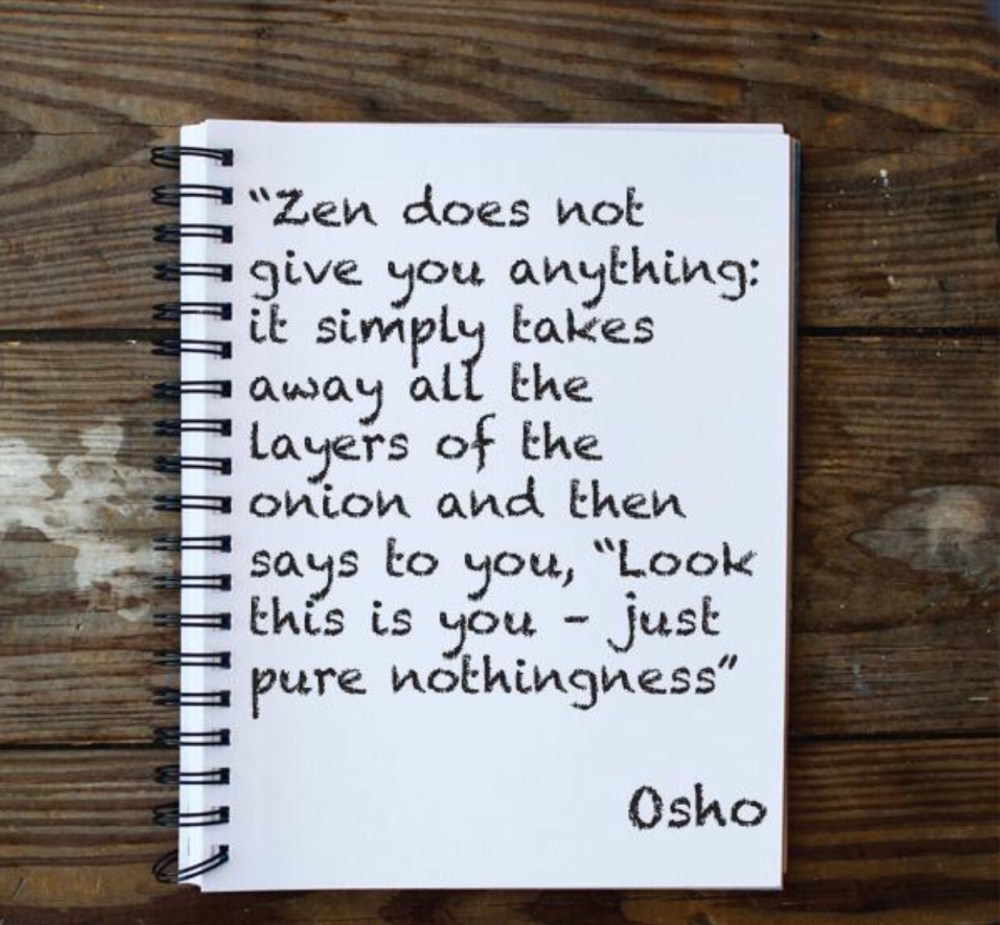 “Zen does not
give you anything:
it simply takes
away all the
layers of the
onion and then
says to you, “Look
this is you - just
pure nothingness”
Osho